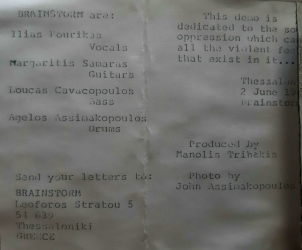 BRAINSTORM are:
Ilias Louritas
Vocals
Margaritis Samaras
Guitars
Loucas Cavacopoulos
Bass
Agelos Assimakopoulos
Drums
Send your letters to:
BRAINSTORM
Leoforos Stratou 5
54 639
Thessaloniki
GREECE
This demo is
dedicated to the
oppression which
all the violent
that exist in it...
2 June
Produced by
Manolis
Photo by
John Assimakopoulos